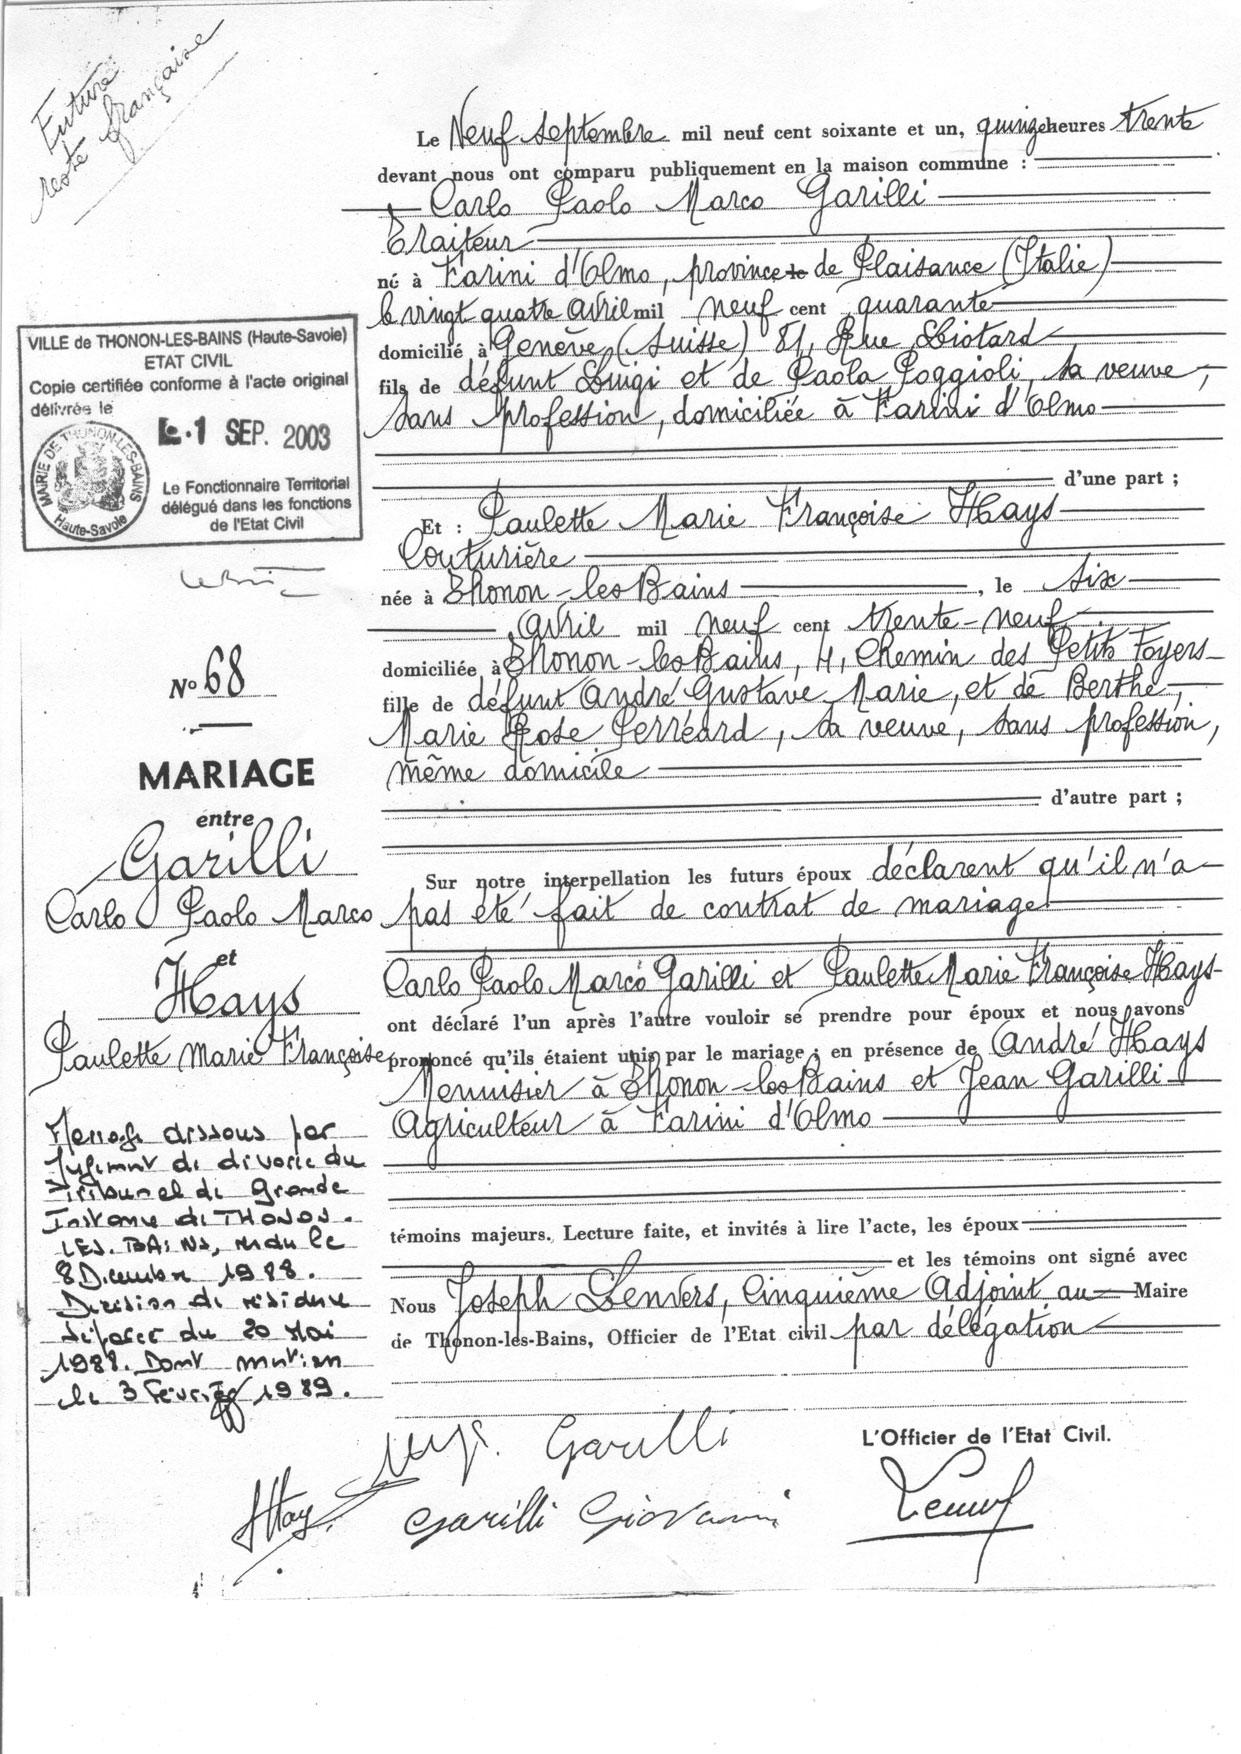 Future
reste française
Le Neuf septembre mil neuf cent soixante et un, quinze heures trente
devant nous ont comparu publiquement en la maison commune :
Carlo Paolo Marco Garilli
Traiteur
né à Farini d'Olmo, province de Plaisance (Italie)
le vingt quatre avril mil neuf cent quarante
domicilié à Genève (Suisse) 81, Rue Liotard
fils de défunt Luigi et de Paola Poggioli, sa veuve,
sans profession, domiciliée à Farini d'Olmo
d'une part ;
Et : Paulette Marie Françoise Hays
Couturière
née à Thonon-les Bains, le six
avril mil neuf cent trente-neuf
domiciliée à Thonon-les Bains, 4, Chemin des Petits Foyers
fille de défunt André Gustave Marie, et de Berthe,
Marie Rose Perréard, sa veuve, sans profession,
même domicile
d'autre part ;
Sur notre interpellation les futurs époux déclarent qu'il n'a
pas été fait de contrat de mariage
Carlo Paolo Marco Garilli et Paulette Marie Françoise Hays
ont déclaré l'un après l'autre vouloir se prendre pour époux et nous avons
prononcé qu'ils étaient unis par le mariage ; en présence de André Hays
Menuisier à Thonon-les Bains et Jean Garilli
Agriculteur à Farini d'Olmo
témoins majeurs. Lecture faite, et invités à lire l'acte, les époux
et les témoins ont signé avec
Nous Joseph Lenvers, Cinquième Adjoint au Maire
de Thonon-les-Bains, Officier de l'Etat civil par délégation
L'Officier de l'Etat Civil.
VILLE de THONON-LES-BAINS (Haute-Savoie)
ETAT CIVIL
Copie certifiée conforme à l'acte original
délivrée le
-1 SEP. 2003
MAIRIE DE THONON-LES-BAINS
Haute-Savoie
Le Fonctionnaire Territorial
délégué dans les fonctions
de l'Etat Civil
No 68
MARIAGE
entre
Garilli
Carlo Paolo Marco
et
Hays
Paulette Marie Françoise
Mariage dissous par
Jugement de divorce du
Tribunal de Grande
Instance de THONON.
LES.BAINS, rendu le
8 Décembre 1988.
Décision de résidence
séparée du 20 Mai
1988. Dont mention
le 3 Février 1989.
Garilli
Hays
Garilli Giovanni